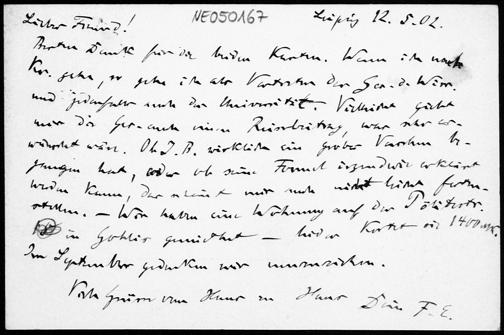 NE050167
Lieber Freund! Leipzig 12.5.02.
Besten Dank für die beiden Karten. Wenn ich nach
gehe, so gehe ich als Vertreter der Ges. d. Wiss.
und jedenfalls auch der Universität. Vielleicht giebt
mir die Ges. auch einen Reisebeitrag, was sehr er-
wünscht wäre. Ob J. B. wirklich ein grober Versehen be-
gangen hat, oder ob seine Formel irgendwie erklärt
werden kann, das scheint mir noch nicht sicher festzu-
stellen. — Wir haben eine Wohnung auf der Pölitzstr.
in Gohlis gemiethet — leider kostet sie 1400 M.
Im September gedenken wir umzuziehen.
Viele Grüsse von Haus zu Haus Dein F. E.